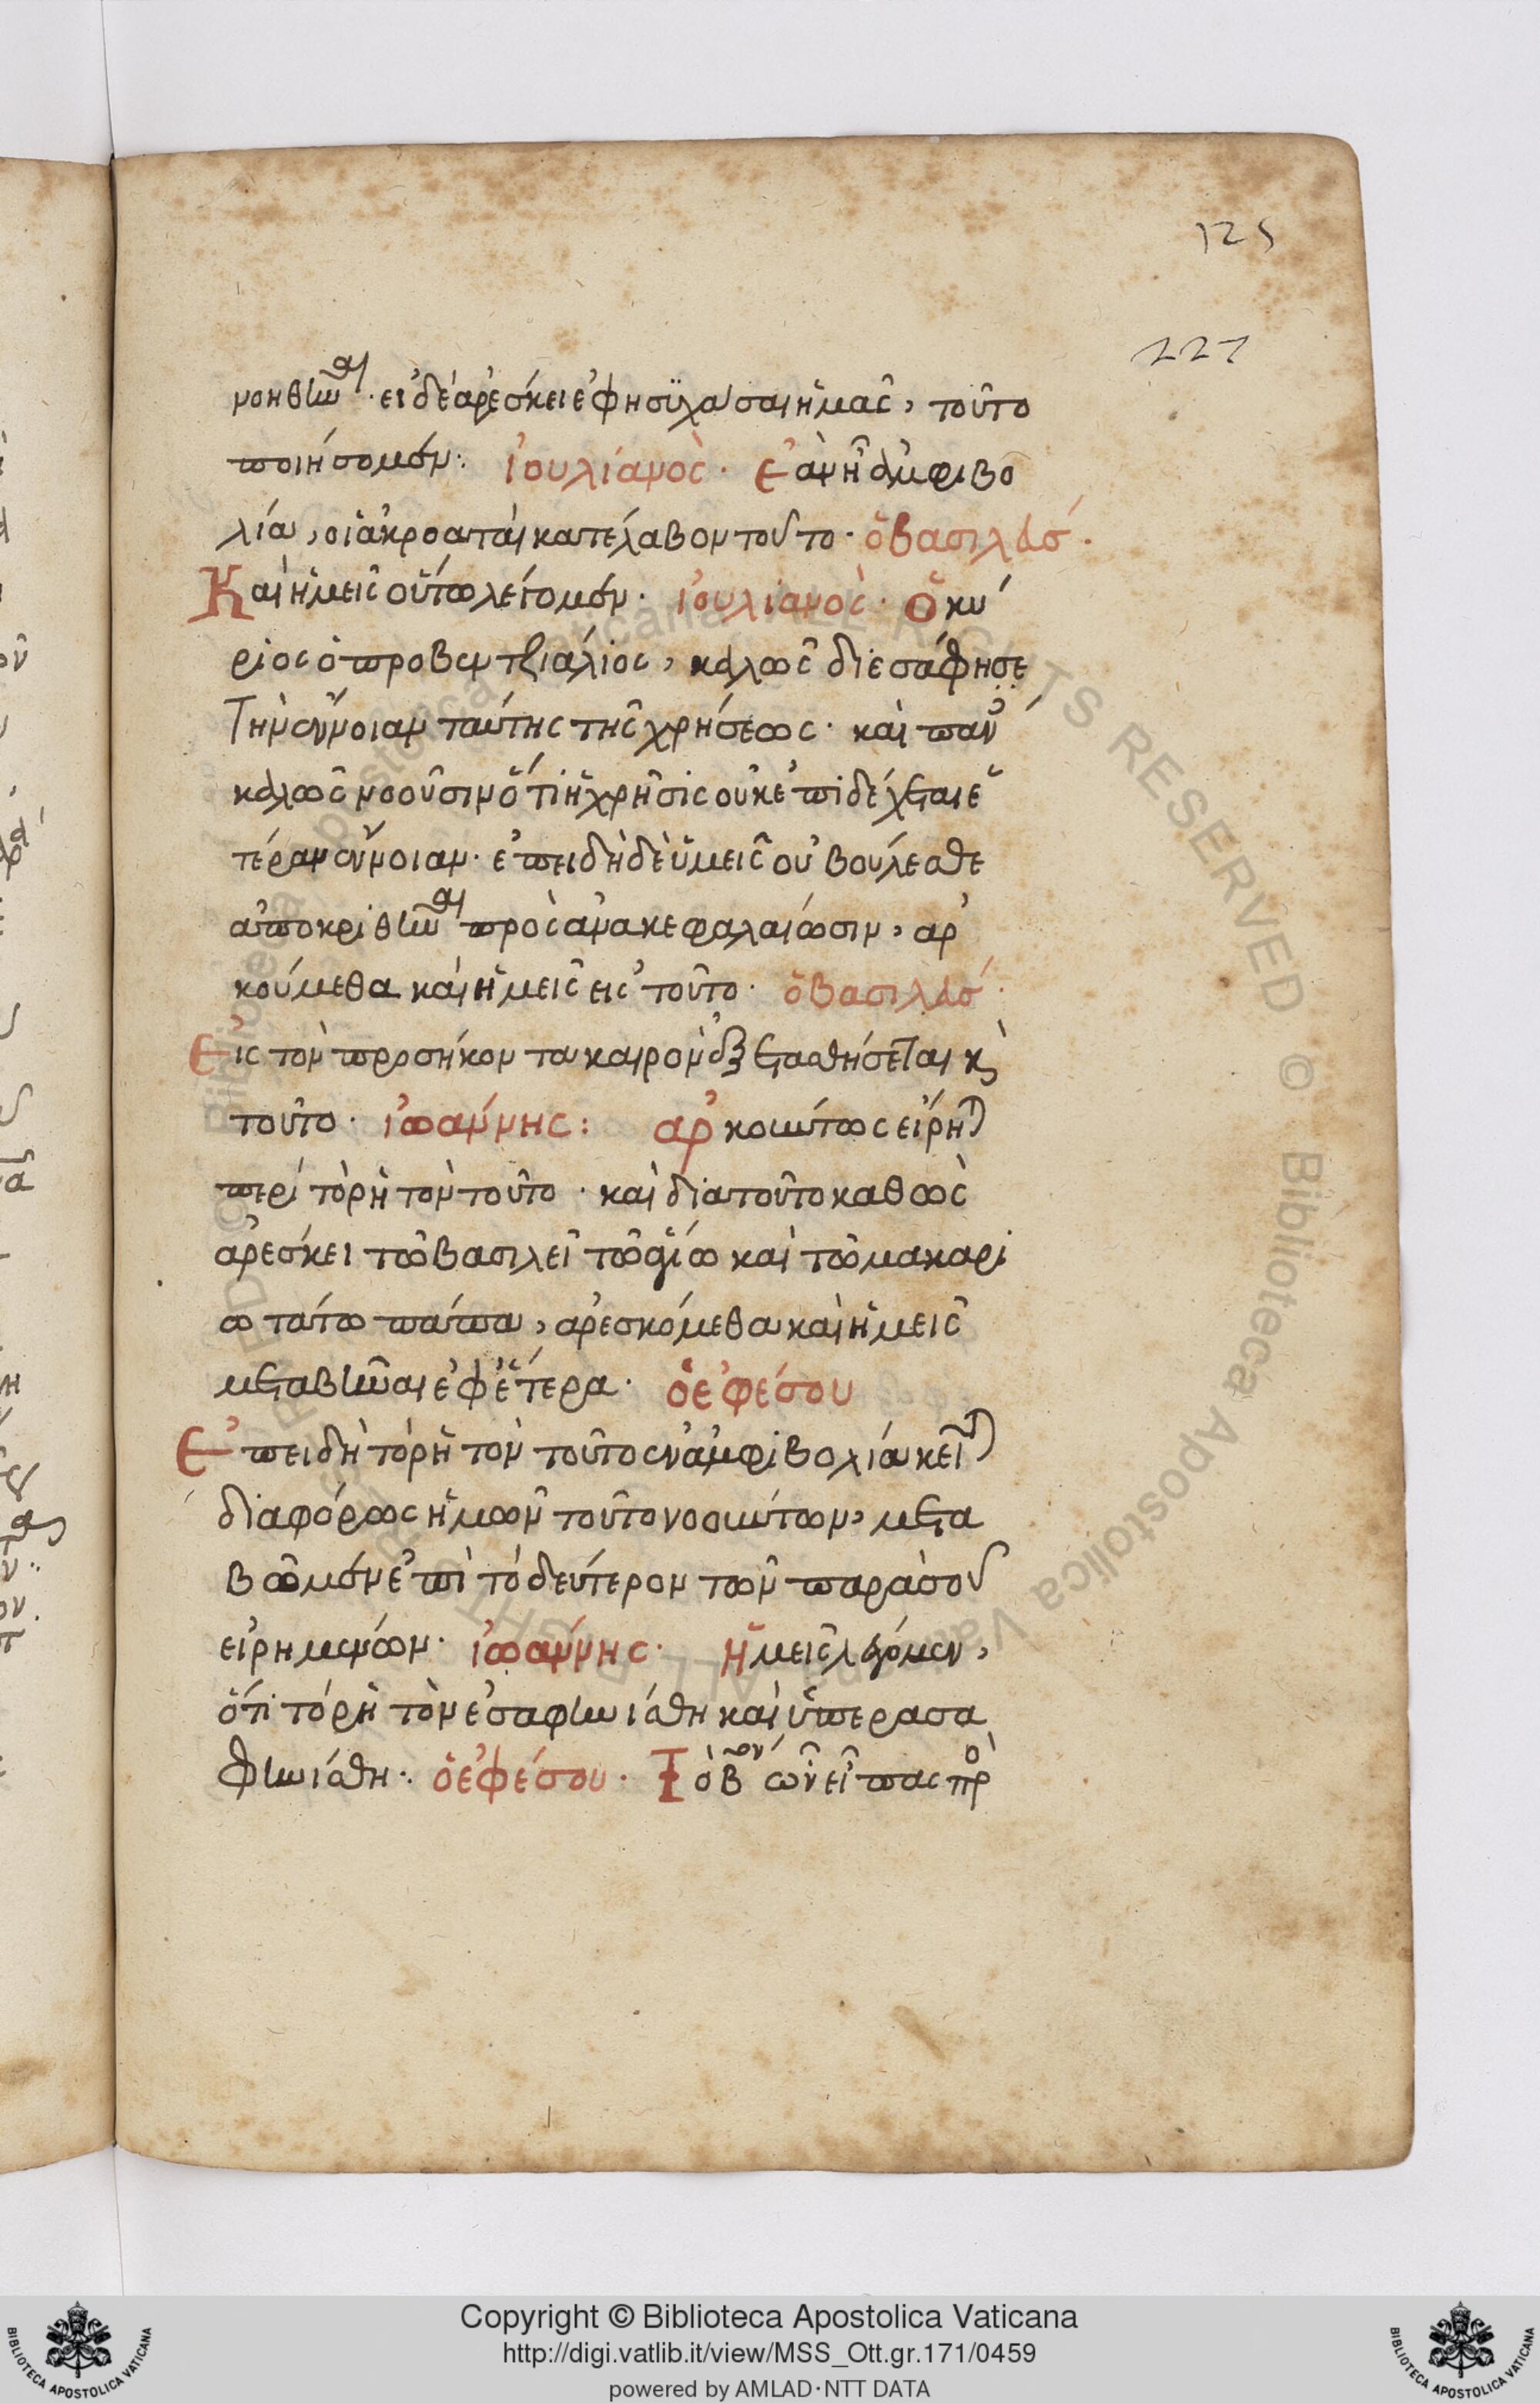 125
221
νοηθῆναι· εἰ δὲ ἀρέσκει ἐφησϋχάσαι ἡμᾶς, τοῦτο
ποιήσομεν: ἰουλιανὸς· ἐὰν ἦ ἀμφιβο
λία, οἱ ἀκροαταὶ κατέλαβον τοῦτο· ὁ βασιλεύσ·
Καὶ ἡμεῖς οὕτω λέγομεν· ἰουλιανὸς· ὁ κύ
ριος ὁ προβεντζιάλιος, καλῶς διεσάφησε
τὴν ἔννοιαν ταύτης τῆς χρήσεως· καὶ πάνυ
καλῶς νοοῦσιν ὅτι ἡ χρῆσις οὐκ ἐπιδέχεται ἑ
τέραν ἔννοιαν· ἐπειδὴ δὲ ὑμεῖς οὐ βούλεσθε
ἀποκριθῆναι πρὸς ἀνακεφαλαίωσιν, ἀρ
κούμεθα καὶ ἡμεῖς εἰς τοῦτο· ὁ βασιλεύσ·
Εἰς τὸν προσήκοντα καιρὸν ἐξετασθήσεται κὶ
τοῦτο· ἰωάννης: ἀρκούντως εἴρηται
περὶ τὸ ρητὸν τοῦτο· καὶ διατοῦτο καθὼς
ἀρέσκει τῶ βασιλεῖ τῶ ἁγίω καὶ τῶ μακαρι
ωτάτω πάπα, ἀρεσκόμεθα καὶ ἡμεῖς
μεταβῆναι ἐφ' ἕτερα· ὁ ἐφέσου
Ἐπειδὴ τὸ ρητὸν τοῦτο ἐν ἀμφιβολία κεῖται
διαφόρως ἡμῶν τοῦτο νοούντων, μετα
βῶμεν ἐπὶ τὸ δεύτερον τῶν παρὰ σοῦ
εἰρημένων· ἰωάννης· ἡμεῖς λέγομεν,
ὅτι τὸ ρητὸν ἐσαφηνίσθη καὶ ὑπερεσα
φηνίσθη·. ὁ ἐφέσου· Τὸ βον ὧν εἶπας πρὸ
Copyright © Biblioteca Apostolica Vaticana
http://digi.vatlib.it/view/MSS_Ott.gr.171/0459
powered by AMLAD·NTT DATA